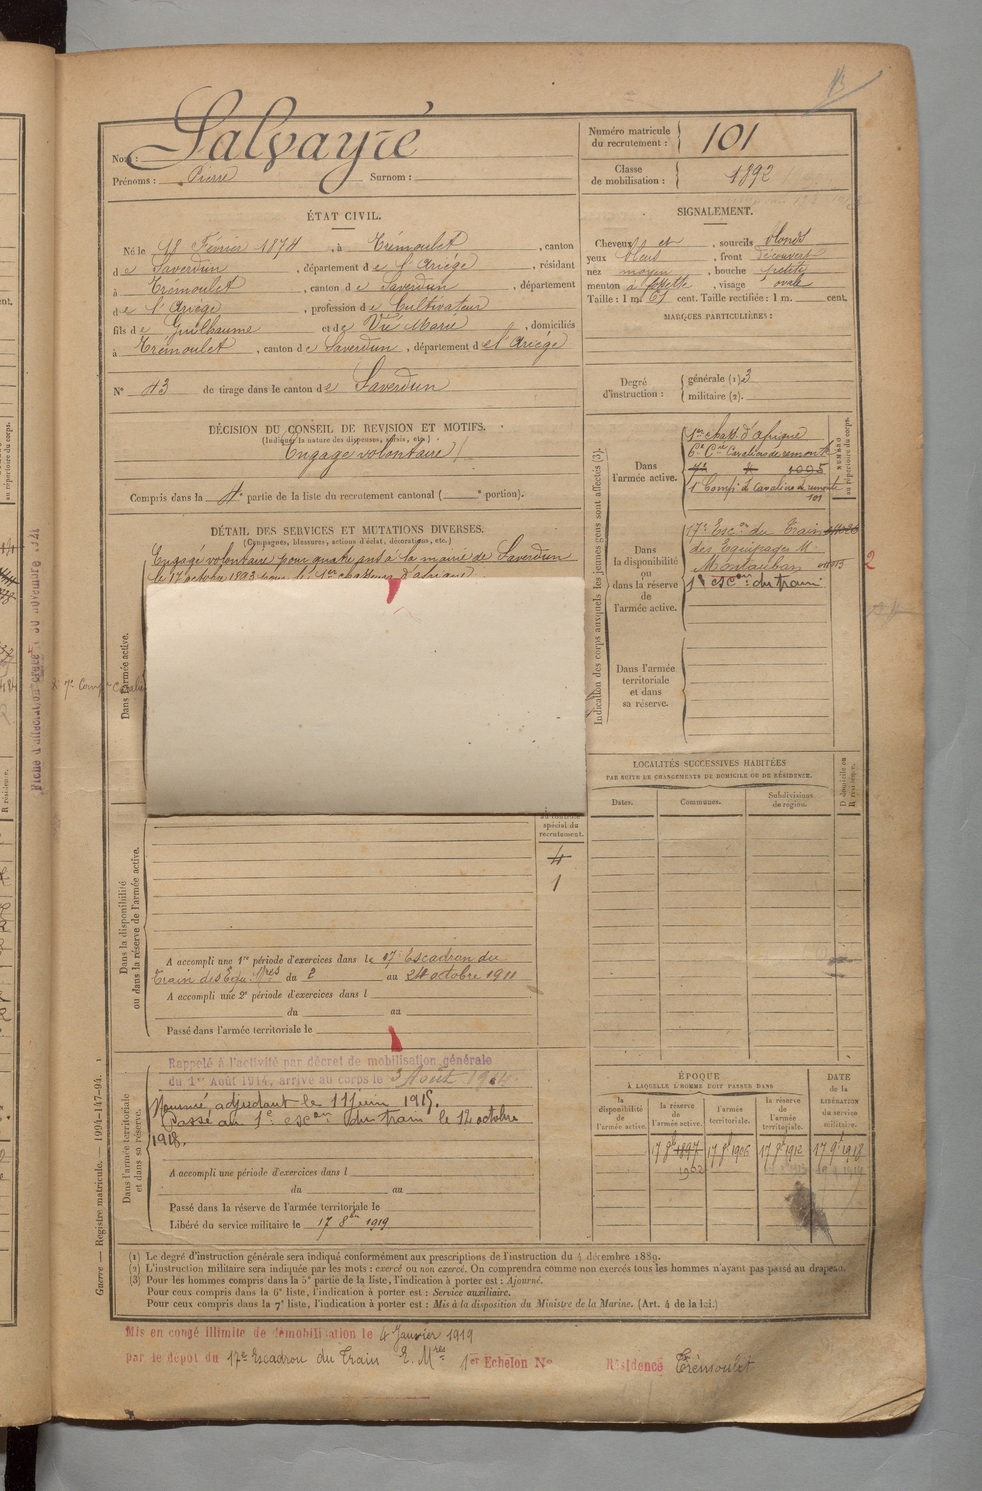 Nom : Salvayré
Prénoms : Pierre Surnom :
Numéro matricule du recrutement : 101
Classe de mobilisation : 1892
ÉTAT CIVIL.
Né le 18 Février 1874, à Trémoulet, canton
de Saverdun, département de l'Ariége, résidant
à Tremoulet, canton de Saverdun, département
de l'Ariège, profession de Cultivateur
fils de Guilhaume et de Vié Marie, domiciliés
à Trémoulet, canton de Saverdun, département de l'Ariége
N° 43 de tirage dans le canton de Saverdun
SIGNALEMENT.
Cheveux et, sourcils blonds
yeux bleus, front découvert
nez moyen, bouche petite
menton à fossette, visage ovale
Taille : 1 m. 61 cent. Taille rectifiée : 1 m. cent.
MARQUES PARTICULIÈRES :
Degré d'instruction : générale (1) 3
militaire (2).
DÉCISION DU CONSEIL DE REVISION ET MOTIFS.
(Indiquer la nature des dispenses, sursis, etc.)
Engagé volontaire
Compris dans la 4e partie de la liste du recrutement cantonal ( e portion).
DÉTAIL DES SERVICES ET MUTATIONS DIVERSES.
(Campagnes, blessures, actions d'éclat, décorations, etc.)
Engagé volontaire pour quatre ans à la mairie de Saverdun
le 17 octobre 1893 pour le 1er chasseurs d'afrique
Indication des corps auxquels les jeunes gens sont affectés (3).
NUMÉRO au répertoire du corps.
Dans l'armée active.
1er chass. d'afrique
6e Cie Cavaliers de remonte
1005
1e Compie de Cavaliers de remonte
101
Dans la disponibilité ou dans la réserve de l'armée active.
17e Escon du Train
des Equipages M.
Montauban
1er escon du train
2
Dans l'armée territoriale et dans sa réserve.
Dans l'armée active.
LOCALITÉS SUCCESSIVES HABITÉES
PAR SUITE DE CHANGEMENTS DE DOMICILE OU DE RÉSIDENCE.
Dates. Communes. Subdivisions de région. D domicile ou R résidence.
spécial du recrutement.
4
1
Dans la disponibilité ou dans la réserve de l'armée active.
A accompli une 1re période d'exercices dans le 17e Escadron du
Train des Equ. Mres du 2 au 24 octobre 1911
A accompli une 2e période d'exercices dans l
du au
Passé dans l'armée territoriale le
Dans l'armée territoriale et dans sa réserve.
Rappelé à l'activité par décret de mobilisation générale
du 1er Août 1914, arrivé au corps le 3 Août 1914.
Nommé adjudant le 11 juin 1915.
Passé au 1e escon du train le 12 octobre
1918.
A accompli une période d'exercices dans l
du au
Passé dans la réserve de l'armée territoriale le
Libéré du service militaire le 17 8bre 1919
ÉPOQUE
À LAQUELLE L'HOMME DOIT PASSER DANS
la disponibilité de l'armée active. la réserve de l'armée active. l'armée territoriale. la réserve de l'armée territoriale.
DATE de la LIBÉRATION du service militaire.
17 8b 1897 17 8b 1906 17 8b 1912 17 9b 1918
Guerre — Registre matricule. — 1994-147-94.
(1) Le degré d'instruction générale sera indiqué conformément aux prescriptions de l'instruction du 4 décembre 1889.
(2) L'instruction militaire sera indiquée par les mots : exercé ou non exercé. On comprendra comme non exercés tous les hommes n'ayant pas passé au drapeau.
(3) Pour les hommes compris dans la 5e partie de la liste, l'indication à porter est : Ajourné.
Pour ceux compris dans la 6e liste, l'indication à porter est : Service auxiliaire.
Pour ceux compris dans la 7e liste, l'indication à porter est : Mis à la disposition du Ministre de la Marine. (Art. 4 de la loi.)
Mis en congé illimité de démobilisation le 4 Janvier 1919
par le dépôt du 17e Escadron du Train E. Mres 1er Echelon N° Résidence Trémoulet